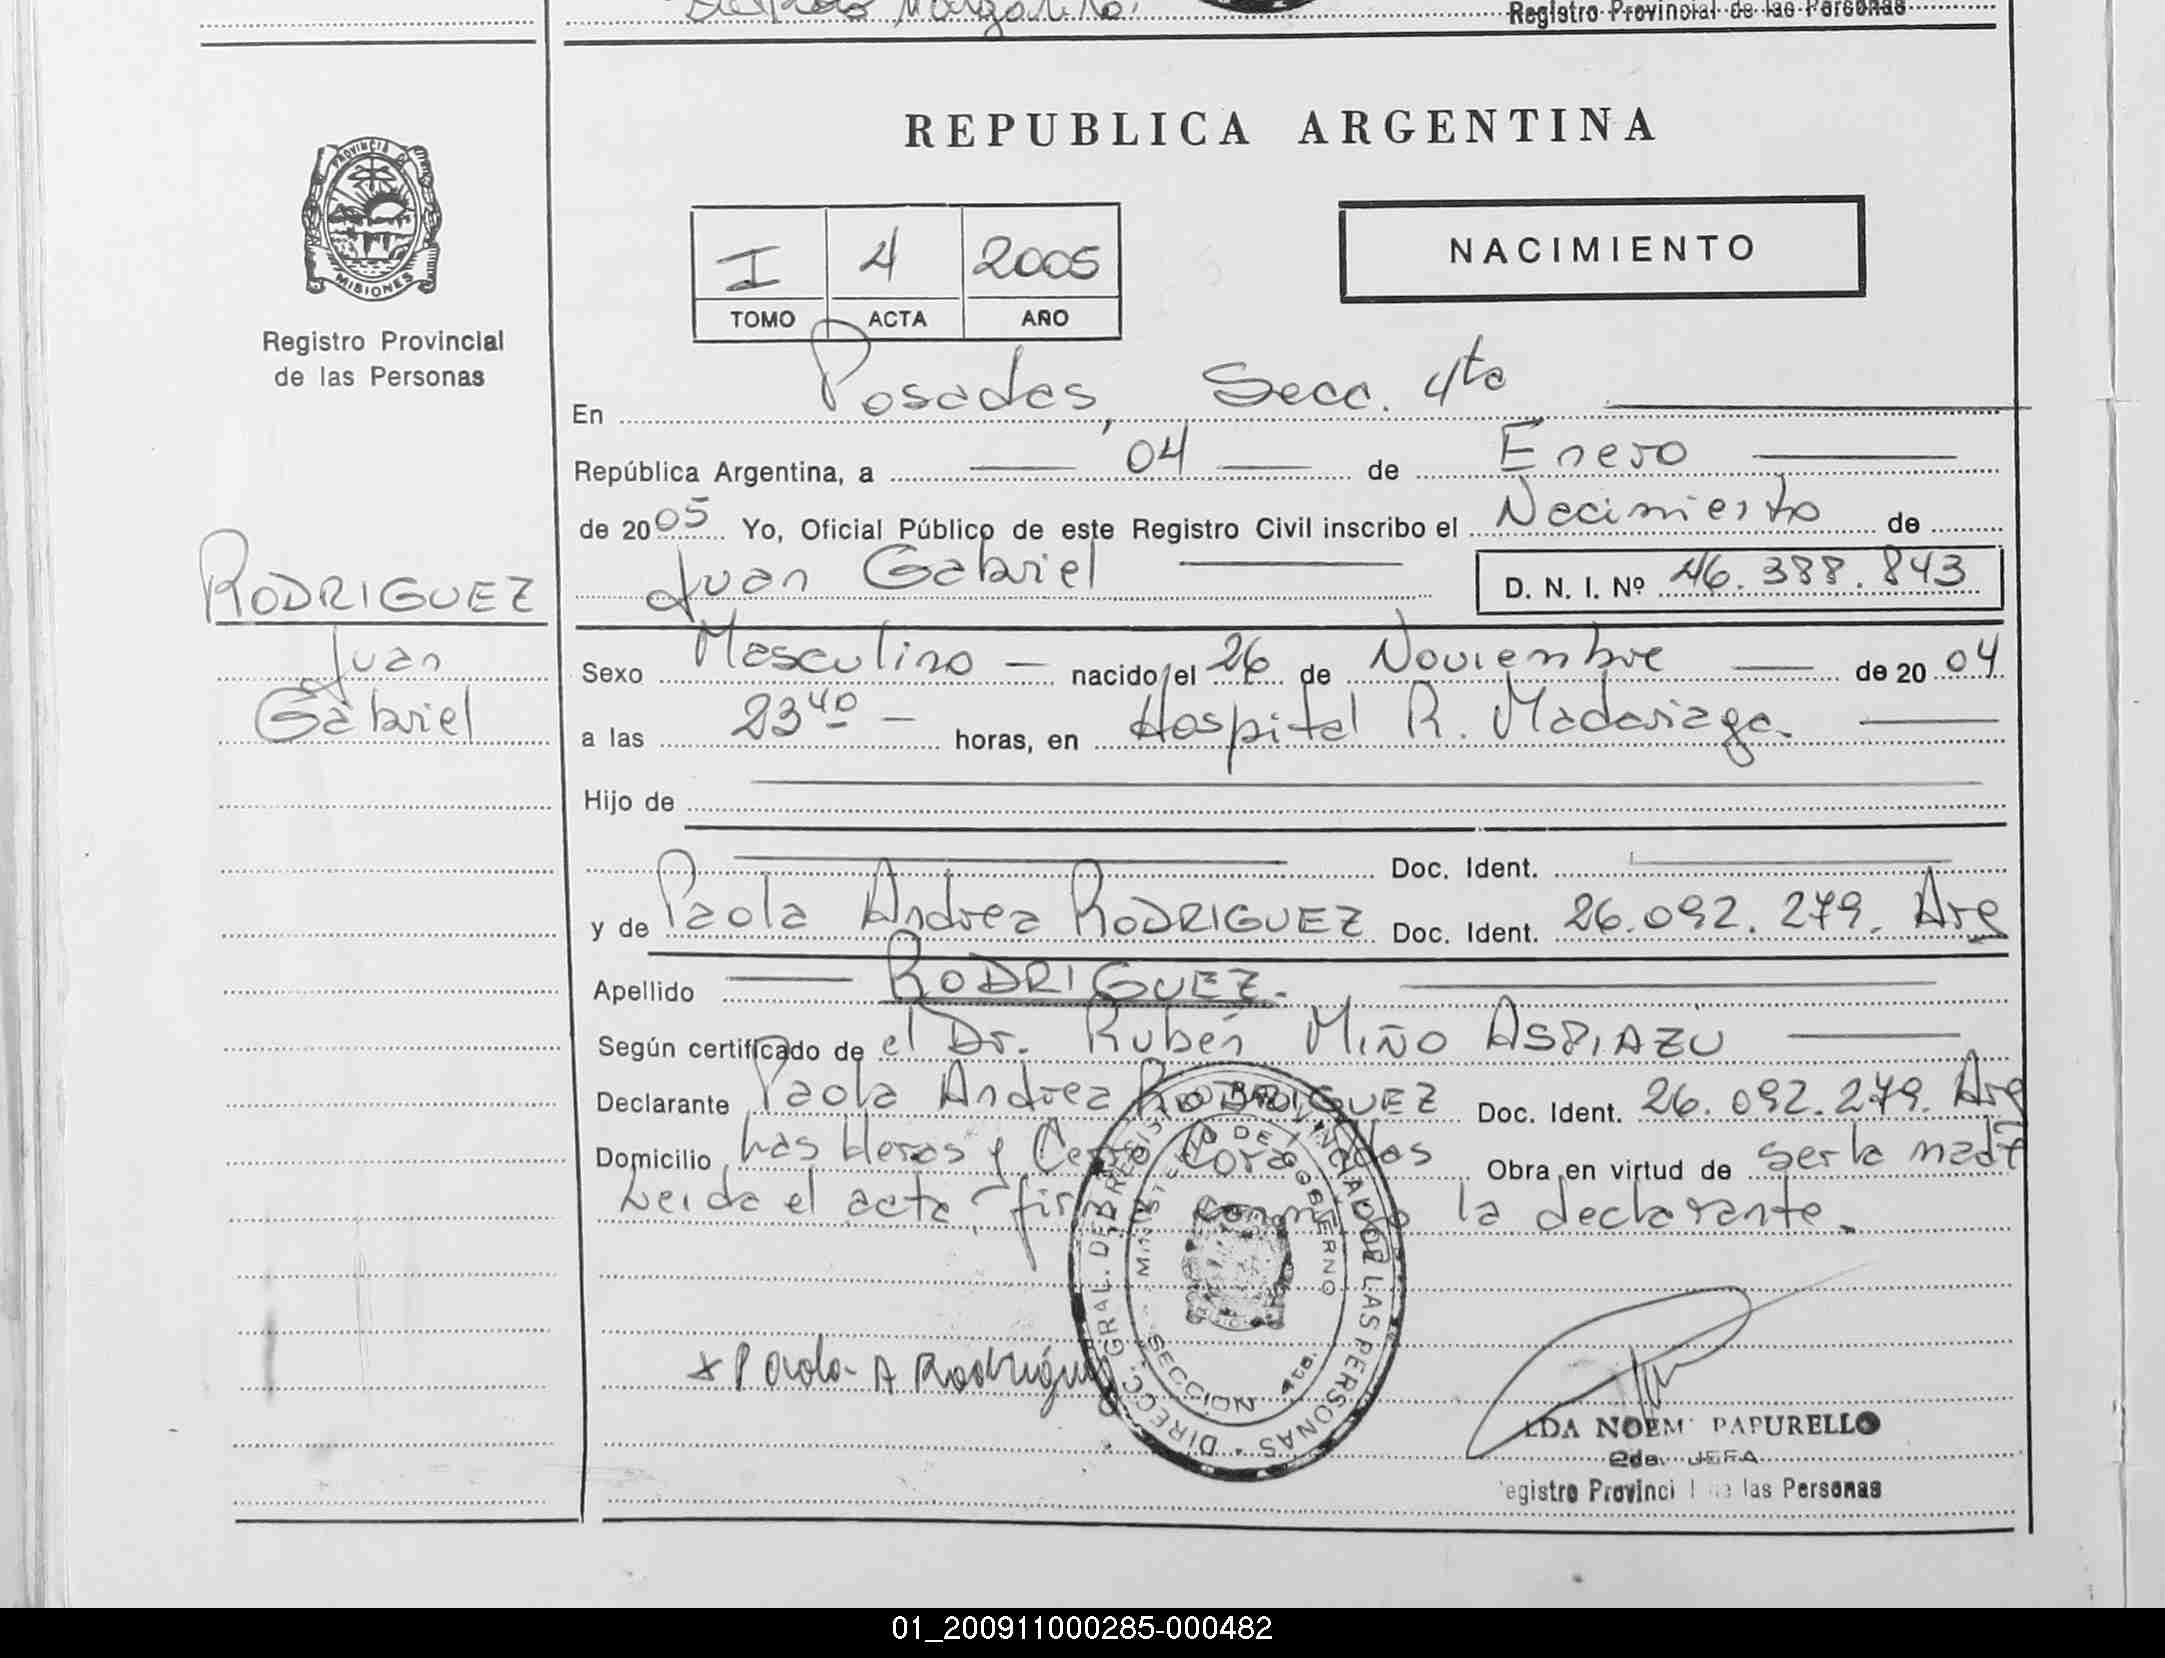 Registro Provincial de las Personas
REPUBLICA ARGENTINA
PROVINCIA DE
MISIONES
Registro Provincial
de las Personas
I 4 2005
TOMO ACTA AÑO
NACIMIENTO
En Posadas, Secc. 4ta
República Argentina, a 04 de Enero
de 2005 Yo, Oficial Público de este Registro Civil inscribo el Nacimiento de
Juan Gabriel D. N. I. Nº 46.388.843
RODRIGUEZ
Juan
Gabriel
Sexo Masculino nacido el 26 de Noviembre de 2004
a las 23 40 horas, en Hospital R. Madariaga.
Hijo de
Doc. Ident.
y de Paola Andrea RODRIGUEZ Doc. Ident. 26.092.279. Arg
Apellido RODRIGUEZ.
Según certificado de el Dr. Rubén MIÑO ASPIAZU
Declarante Paola Andrea RODRIGUEZ Doc. Ident. 26.092.279. Arg
Domicilio Las Heras y Cerro Corá Pdas Obra en virtud de ser la madre
Leida el acta, firma conmigo la declarante.
x Paola A Rodríguez
DIRECC. GRAL. DEL REGISTRO PROVINCIAL DE LAS PERSONAS
MINISTERIO DE GOBIERNO
SECCION 4ta.
LDA NOEMI PAPURELLO
2da. JEFA
Registro Provincial de las Personas
01_200911000285-000482